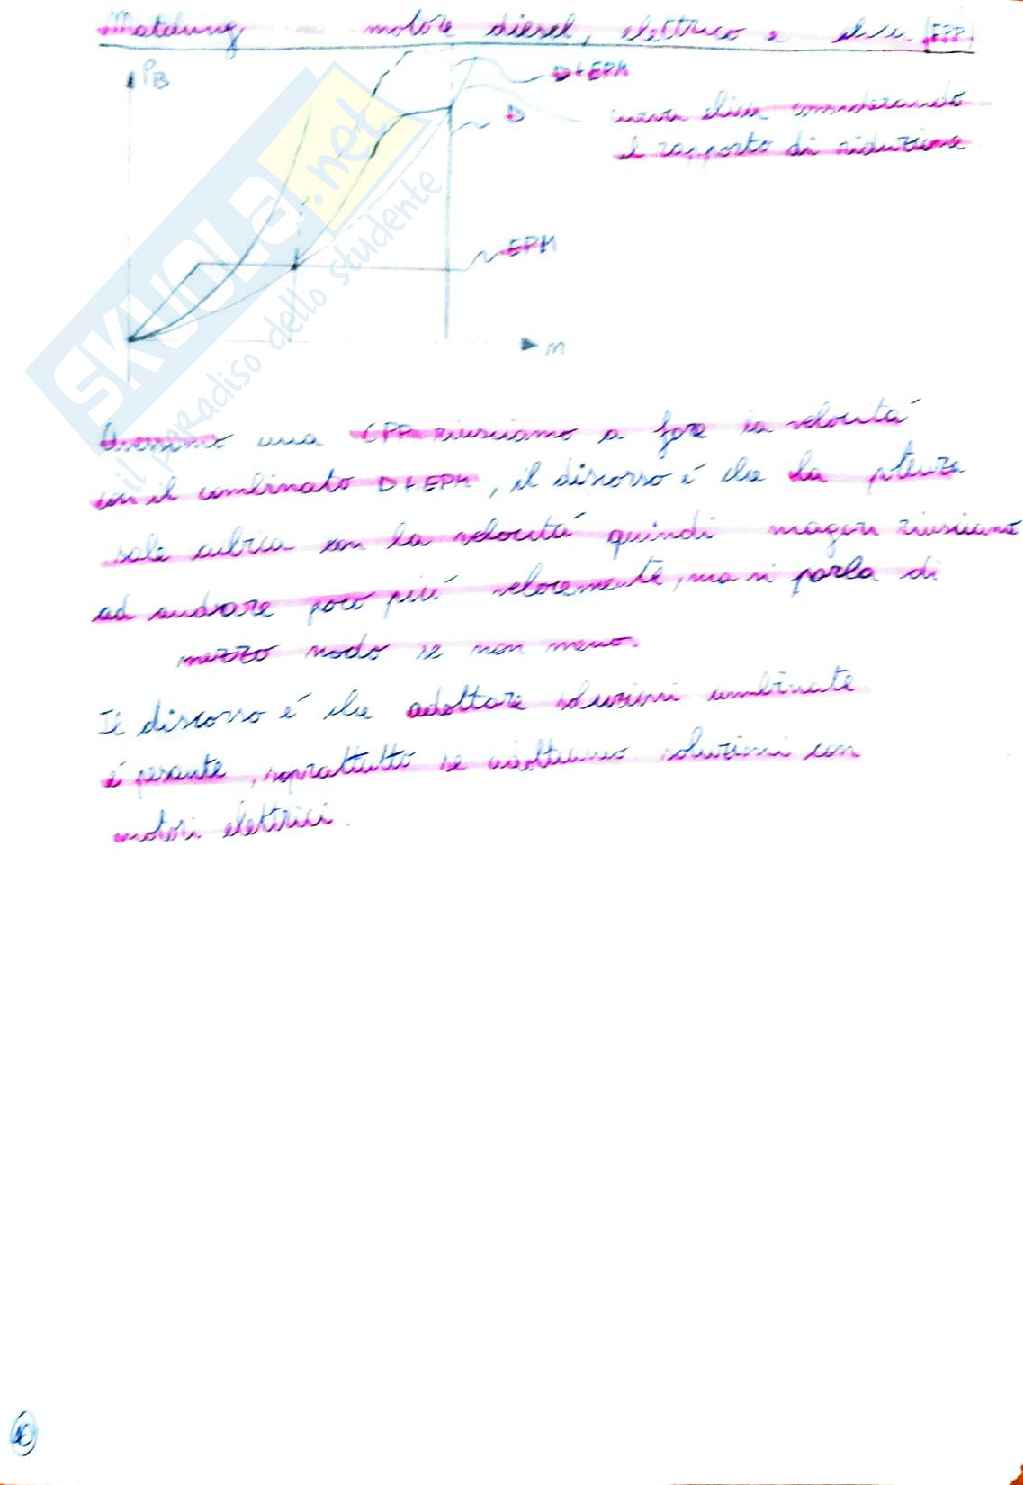 Matching motore diesel, elettrico e elica FPP
PB
D+EPM
D
curva elica considerando
il rapporto di riduzione
EPM
n
SKUOLA.net
il paradiso dello studente
Avessimo una CPP riusciamo a fare la velocitá
con il combinato D+EPM, il discorso é che la potenza
sale cubica con la velocitá quindi magari riusciamo
ad andare poco piú velocemente, ma si parla di
mezzo nodo se non meno.
Il discorso é che adottare soluzioni combinate
é pesante, soprattutto se adottiamo soluzioni con
motori elettrici.